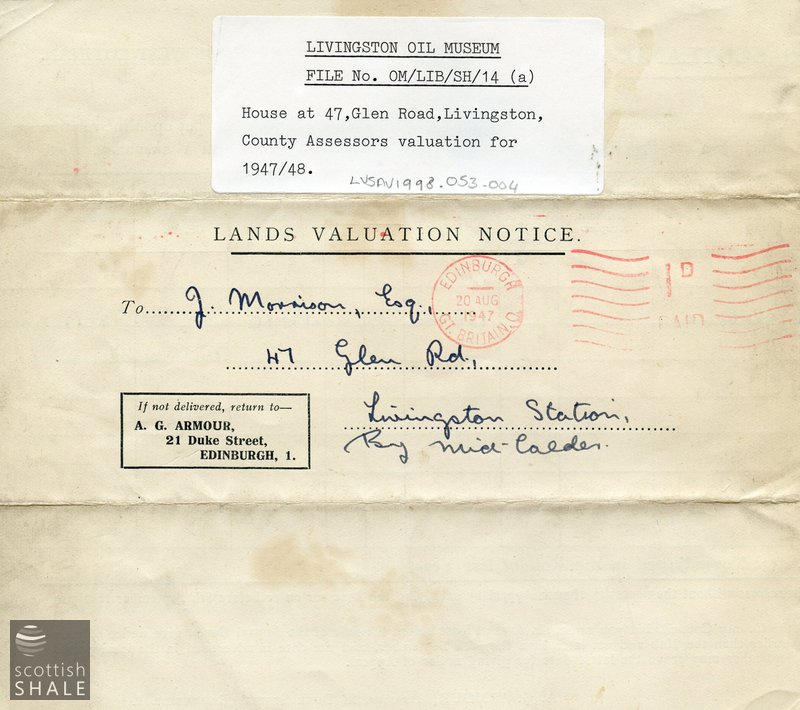 LIVINGSTON OIL MUSEUM
FILE No. OM/LIB/SH/14 (a)
House at 47,Glen Road,Livingston,
County Assessors valuation for
1947/48.
LVSAV1998.053.004
LANDS VALUATION NOTICE.
To J. Morrison, Esq.,
47 Glen Rd.,
Livingston Station,
By Mid-Calder.
EDINBURGH
20 AUG
1947
GT. BRITAIN.
1D
PAID
If not delivered, return to—
A. G. ARMOUR,
21 Duke Street,
EDINBURGH, 1.
scottish
SHALE